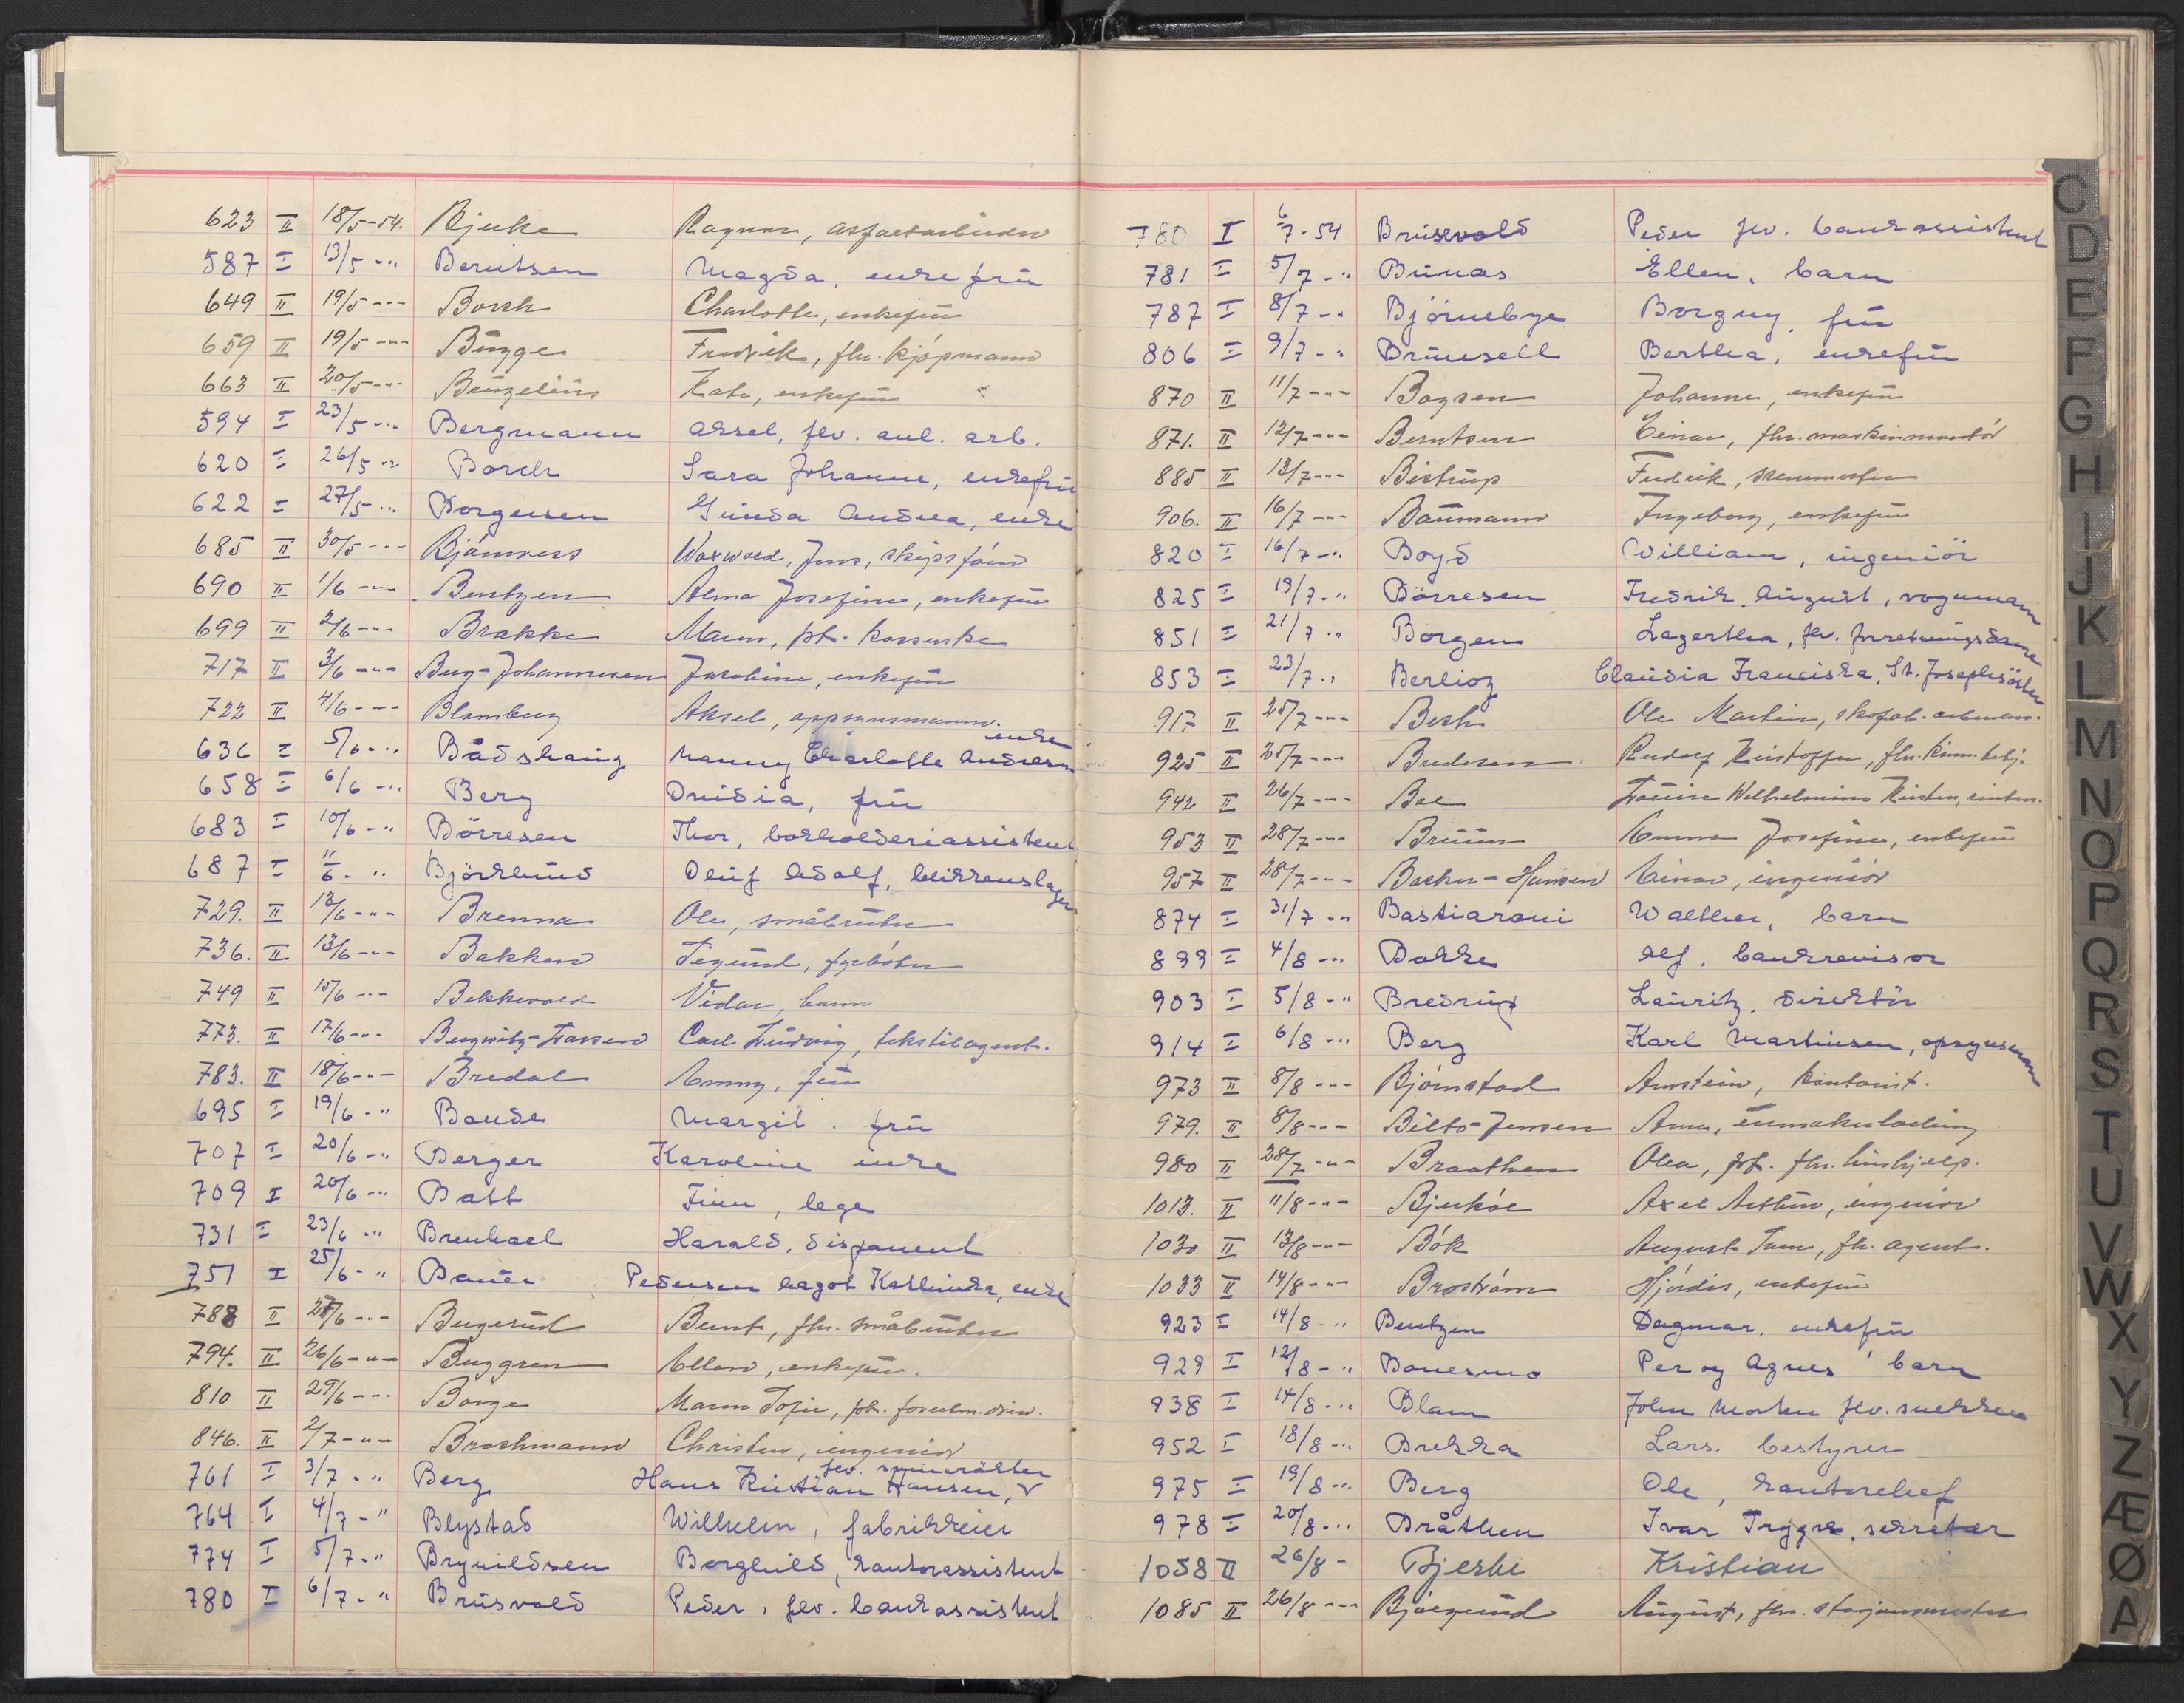 623 II 18/5-54. Bjerke Ragnar, asfaltarbeider
587 I 13/5 -"- Berntsen Magda, enkefrü
649 II 19/5 --- Borch Charlotte, enkefrü
659 II 19/5 -"- Bügge Fredrik, fhv. kjöpmann
663 II 20/5 --- Benzelius Kate, enkefrü
594 I 23/5 -"- Bergmann Aksel, fhv. anl. arb.
620 I 26/5 -"- Borch Sara Johanne, enkefrü
622 I 27/5 -"- Borgersen Günda Andrea, enke
685 II 30/5 --- Bjämness Waxwald, Jens, skips
690 II 1/6 -"- Bentzen Alma Josefine, enkefrü
699 II 2/6 -"- Brakke Maren, pt.
717 II 3/6 -"- Berg-Johannesen Jacobine, enkefrü
722 II 4/6 -"- Blomberg Aksel, oppsynsmann.
636 I 5/6 -"- Bådshaüg Nanny Charlotte Andresen enke
658 I 6/6 -"- Berg Ovidia, frü
683 I 10/6 -"- Börresen Thor, bokholderiassistent
687 I 11/6 -"- Björklünd Olüf Adolf, blikkenslager
729. II 12/6 -"- Brenna Ole, småbrüker
736. II 13/6 --- Bakken Sigurd, fyrböter
749 II 15/6 --- Bekkevold Vidar, barn
773. II 17/6 -"- Bergwitz-Larsen Carl Lüdvig, tekstilagent.
783. II 18/6 -"- Bredal Emmy, frü
695 I 19/6 -"- Bonde Margit. frü
707 I 20/6 -"- Berger Karoline enke
709 I 20/6 -"- Batt Finn, lege
731 I 23/6 -"- Brenhael Harald, disponent
751 I 25/6 -"- Baüer Pedersen Kathinka, enke
788 II 27/6 --- Bergerüd Bernt, fhv. småbrüker
794. II 26/6 -"- Berggren Ellen, enkefrü.
810 II 29/6 --- Borge Maren Sofie, pt.
846. II 2/7 -"- Brochmann Christen, ingeniör
761 I 3/7 -"- Berg Hans Kristian Hansen, fhv.
764 I 4/7 -" Blystad Wilhelm, fabrikkeier
774 I 5/7 -" Brynildsen Borghild, kontorassistent
780 I 6/7 -" Brüsvold Peder, fhv. bankassistent
780 I 6/7-54 Brüsevold Peder fhv. bankassistent
781 I 5/7 -" Bünas Ellen, barn
787 I 8/7 -" Björnebye Borgny, frü
806 I 9/7 -" Brünsell Bertha, enkefrü
870 II 11/7 -"- Boysen Johanne, enkefrü
871. II 12/7 -"- Berntsen Einar, fhv. maskinmontör
885 II 13/7 --- Bistrüp Fredrik,
906. II 16/7 --- Baümann Ingeborg, enkefrü
820 I 16/7 -" Boyd William, ingeniör
825 I 19/7 -" Börresen Fredrik August, vognmann
851 I 21/7 -" Borgen Lagertha, fhv. forretningsdame
853 I 23/7 -" Berlioz Claüdia Franciska, St. Josephsöster
917 II 25/7 --- Bech Ole Martin, skofab. arbeider.
925 II 25/7 --- Bredesen Rudolf Kristoffer, fhv.
942 II 26/7 -"- Boe Loüise Wilhelmine Kirsten,
953 II 28/7 -"- Brüün Emma Josefine, enkefrü
957 II 28/7 --- Backer-Hansen Einar, ingeniör
874 I 31/7 -" Bastiaroni Walther, barn
899 I 4/8 -" Bakke Alf. bankrevisor
903 I 5/8 -" Bredrüp Laüritz, direktör
914 I 6/8 -" Berg Karl Martinsen, opsynsmann
973 II 8/8 --- Björnstad Arnstein, kontorist.
979. II 8/8 -"- Bilto-Jensen Arne, ürmakerlærling
980 II 28/7 -"- Braathen Olea, pt. fhv. hüshjelp.
1013. II 11/8 --- Bjerköe Axel Arthür, ingeniör
1030 II 13/8 -"- Bök August, fhv. agent.
1033 II 14/8 -"- Broström Hjördis, enkefrü
923 I 14/8 -" Bentzen Dagmar, enkefrü
929 I 12/8 -" Bonesmo Per og Agnes' barn
938 I 14/8 -" Blom John Morten fhv. snekker
952 I 18/8 -" Brekka Lars. bestyrer
975 I 19/8 -" Berg Ole, kontorchef
978 I 20/8 -" Bråthen Ivar Trygve, sekretær
1058 II 26/8 - Bjerke Kristian
1085 II 26/8 --- Bjoergünd August, fhv. stasjonsmester
C
D
E
F
G
H
I
J
K
L
M
N
O
P
Q
R
S
T
U
V
W
X
Y
Z
Æ
Ø
A